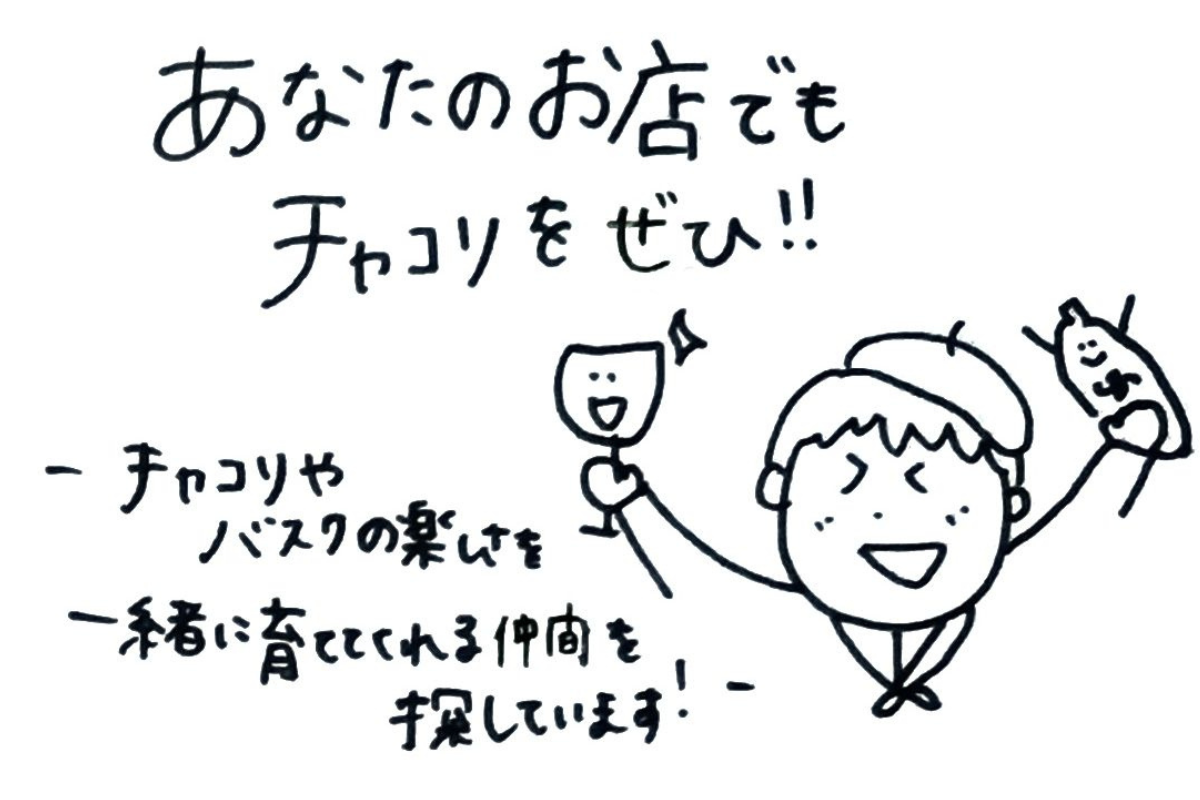 あなたのお店でも
チャコリをぜひ!!
- チャコリや
バスクの楽しさを
一緒に育ててくれる仲間を
探しています! -